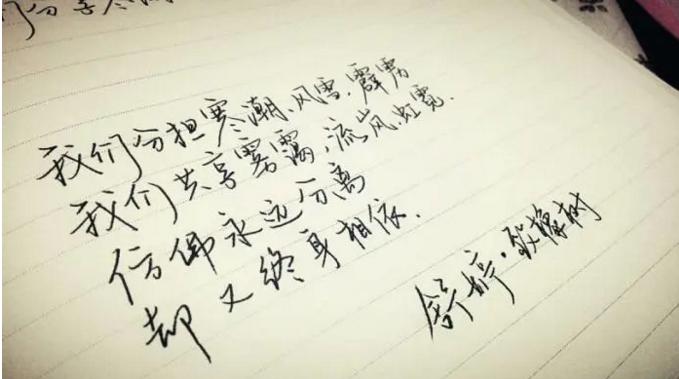 我们分担寒潮、风雪、霹雳
我们共享雾霭、流岚、虹霓.
仿佛永远分离
却又终身相依.
舒婷·致橡树